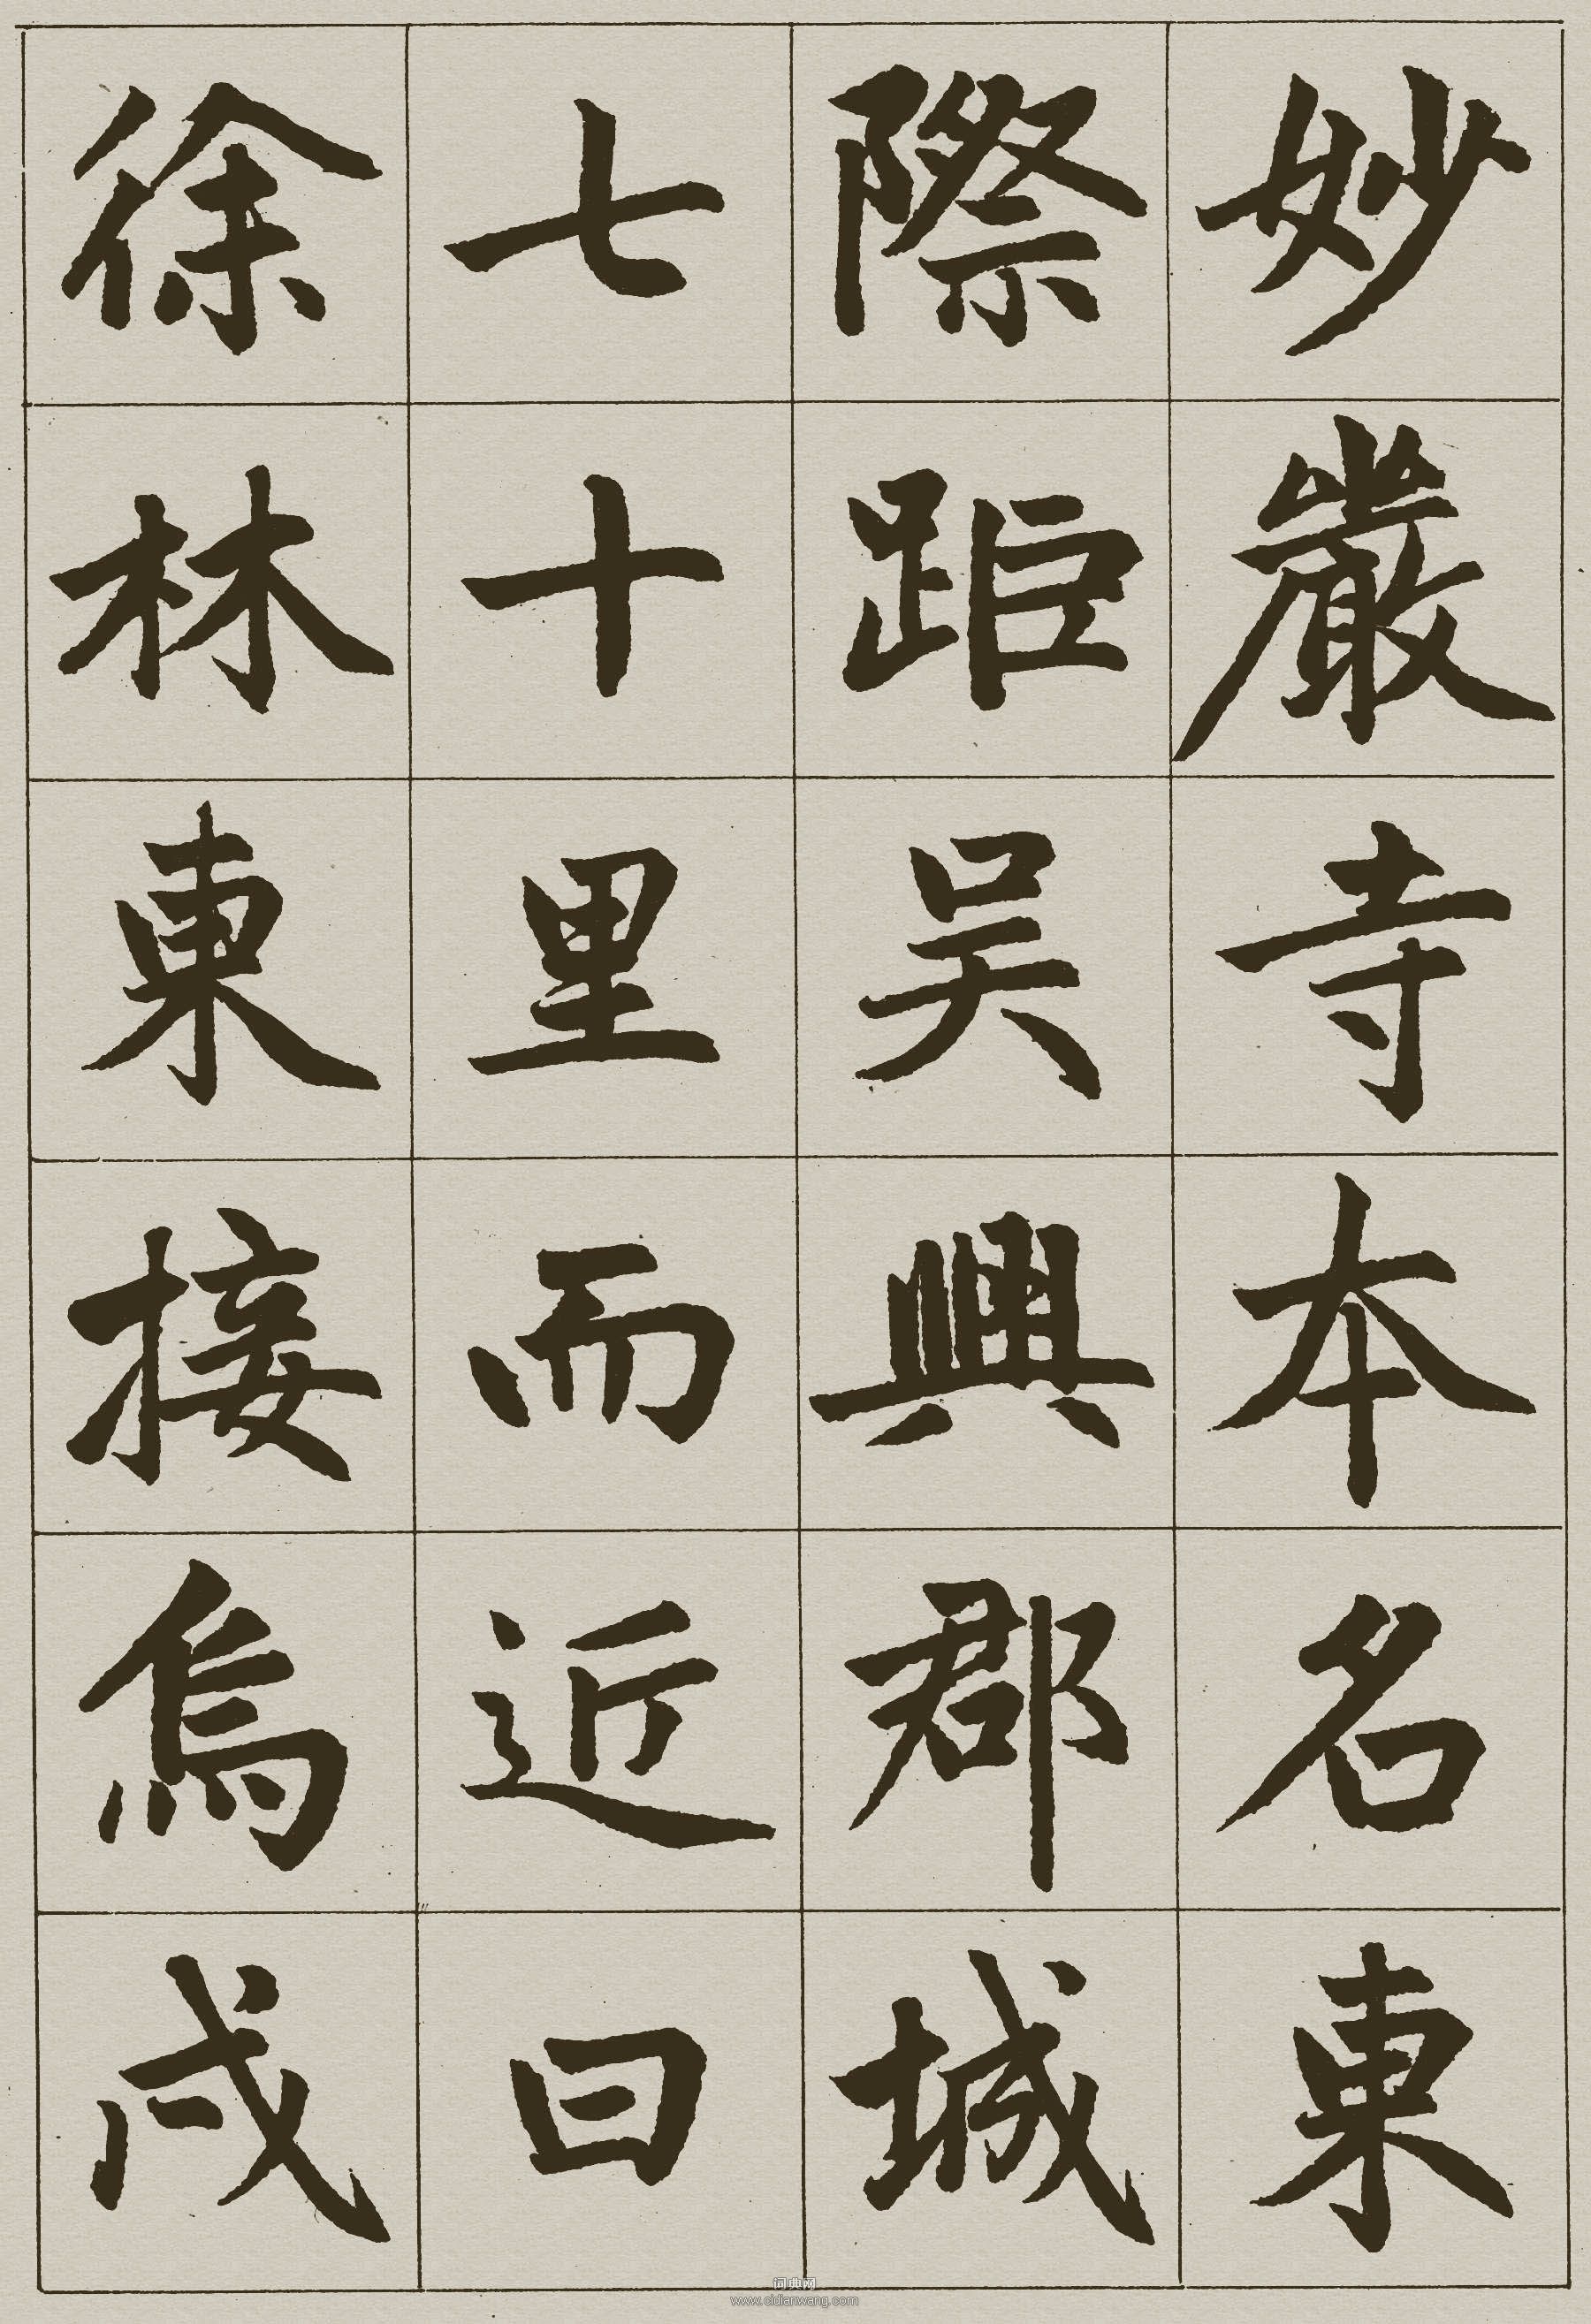 妙嚴寺本名東
際距吳興郡城
七十里而近曰
徐林東接烏戍
词典网
www.cidianwang.com